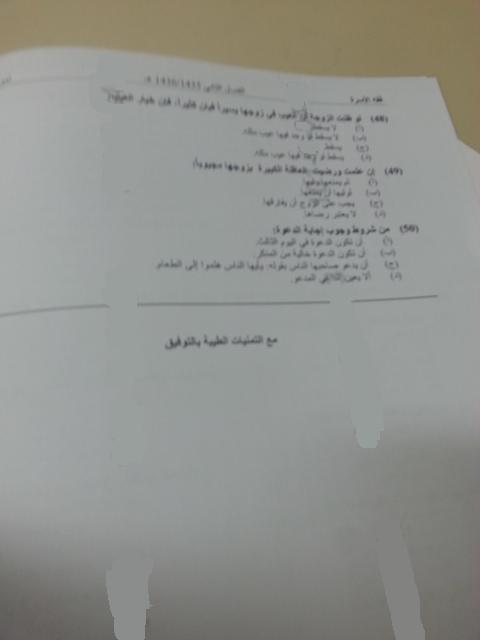 فقه الأسرة الفصل الثاني 1435/1436 هـ
(48) لو ظنت الزوجة أن العيب في زوجها يسيراً فبان كثيراً، فإن خيار العيب:
(أ) لا يسقط
(ب) لا يسقط لو وجد فيها عيب مثله.
(ج) يسقط
(د) يسقط لو وجد فيها عيب مثله.
(49) إن علمت ورضيت العاقلة الكبيرة بزوجها مجبوباً:
(أ) لم يمنعها وليها.
(ب) لوليها أن يمنعها
(ج) يجب على الزوج أن يفارقها
(د) لا يعتبر رضاها.
(50) من شروط وجوب إجابة الدعوة:
(أ) أن تكون الدعوة في اليوم الثالث.
(ب) أن تكون الدعوة خالية من المنكر.
(ج) أن يدعو صاحبها الناس بقوله: يأيها الناس هلموا إلى الطعام
(د) ألا يعين الداعي المدعو.
مع التمنيات الطيبة بالتوفيق